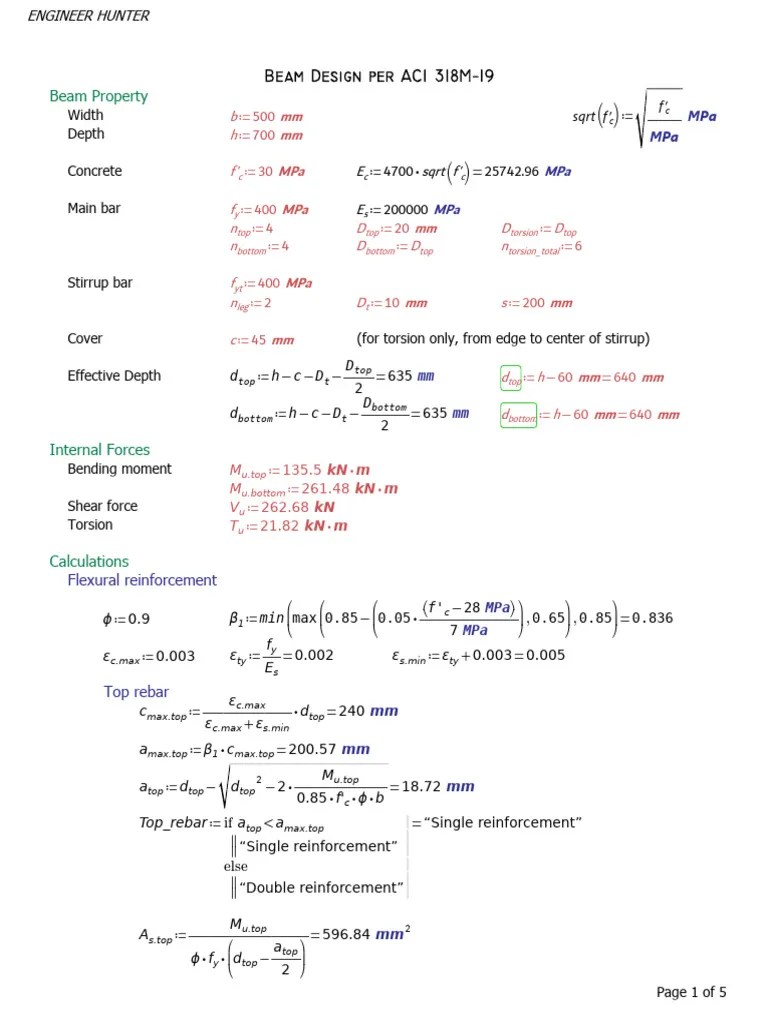 ENGINEER HUNTER
BEAM DESIGN PER ACI 318M-19
Beam Property
Width b≔500 mm sqrt(f'c)≔√(f'c/MPa) MPa
Depth h≔700 mm
Concrete f'c≔30 MPa Ec≔4700·sqrt(f'c)=25742.96 MPa
Main bar fy≔400 MPa Es≔200000 MPa
ntop≔4 Dtop≔20 mm Dtorsion≔Dtop
nbottom≔4 Dbottom≔Dtop ntorsion_total≔6
Stirrup bar fyt≔400 MPa
nleg≔2 Dt≔10 mm s≔200 mm
Cover c≔45 mm (for torsion only, from edge to center of stirrup)
Effective Depth dtop≔h−c−Dt−Dtop/2=635 mm dtop≔h−60 mm=640 mm
dbottom≔h−c−Dt−Dbottom/2=635 mm dbottom≔h−60 mm=640 mm
Internal Forces
Bending moment Mu.top≔135.5 kN·m
Mu.bottom≔261.48 kN·m
Shear force Vu≔262.68 kN
Torsion Tu≔21.82 kN·m
Calculations
Flexural reinforcement
ϕ≔0.9 β1≔min(max(0.85−(0.05·(f'c−28 MPa)/7 MPa),0.65),0.85)=0.836
εc.max≔0.003 εty≔fy/Es=0.002 εs.min≔εty+0.003=0.005
Top rebar
cmax.top≔εc.max/(εc.max+εs.min)·dtop=240 mm
amax.top≔β1·cmax.top=200.57 mm
atop≔dtop−√(dtop²−2·Mu.top/(0.85·f'c·ϕ·b))=18.72 mm
Top_rebar≔if atop<amax.top =“Single reinforcement”
‖“Single reinforcement”
else
‖“Double reinforcement”
As.top≔Mu.top/(ϕ·fy·(dtop−atop/2))=596.84 mm²
Page 1 of 5